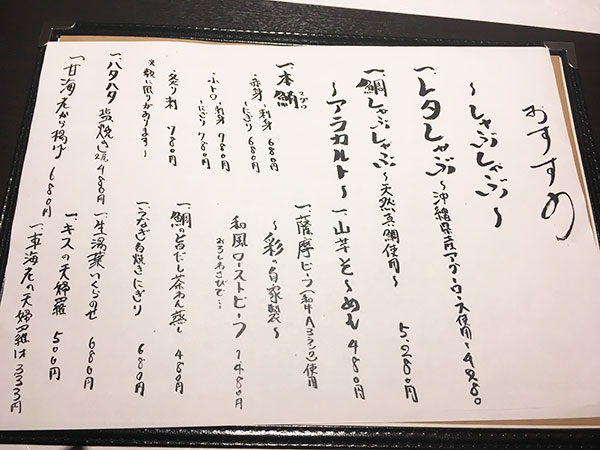 おすすめ
～しゃぶしゃぶ～
一、レタしゃぶ～沖縄県産アグーロース使用～4280
一、鯛しゃぶしゃぶ～天然真鯛使用～ 5280円
～アラカルト～
一、本鮪 マグロ
・赤身・刺身 680円
・にぎり 680円
・トロ・刺身 780円
・にぎり 780円
・炙り刺 780円
※数に限りがあります～
一、ハタハタ塩焼き2尾 480円
一、甘海老から揚げ 680円
一、山芋そ～めん 480円
一、薩摩ビーフ(和牛A5ランク)使用
～彩の自家製～
和風ローストビーフ 1480円
おろしわさびで…
一、鯛の旨だし茶わん蒸し 480円
一、うなぎ白焼きにぎり 680円
一、生湯葉いくらのせ 680円
一、キスの天婦羅 500円
一、車海老の天婦羅1本 333円